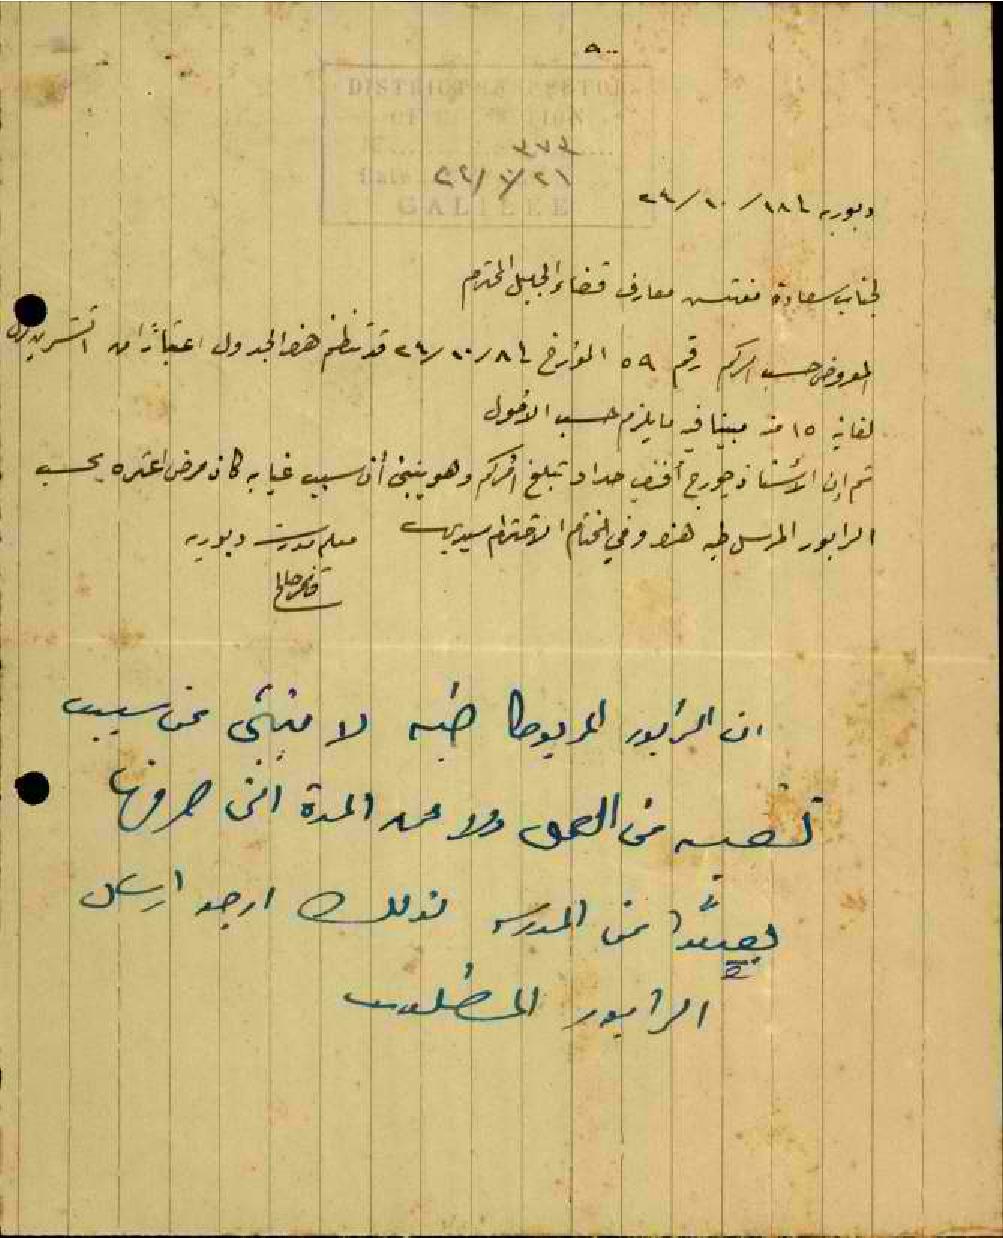 DISTRICT INSPECTOR
OF EDUCATION
٣٧٣
Date ٢١/١٠/٢٤
GALILEE
دبوريه في ١٨/١٠/٢٤
لجناب سعادة مفتش معارف قضاء الجليل المحترم
المعروض حسب امركم رقم ٥٩ المؤرخ في ٨/١٠/٢٤ قد تنظم هذا الجدول اعتبارًا من ١ تشرين اول
لغاية ١٥ منه مبينا فيه ما يلزم حسب الاصول
ثم إن الأستاذ جورج أفندي حداد تبلغ امركم وهو ينبئ أن سبب غيابه كان مرض اعتراه بحسب
الرابور المرسل طيه هذا وفي الختام الاحترام سيدي
معلم مدرسة دبوريه
ان الرابور المربوط طيه لا ينبئ عن سبب
تغيبه عن العمل ولا عن المدة التي صرفها
بعيدًا عن المدرسه لذلك ارجو ارسال
الرابور المطلوب